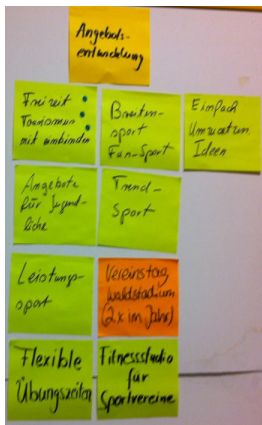 Angebots-
entwicklung
Freizeit
Tourismus
mit einbinden
Breiten-
sport
Fun-Sport
Einfach
Umsetzen
Ideen
Angebote
für Jugend-
liche
Trend-
Sport
Leistungs-
sport
Vereinstag
Waldstadium
(2x im Jahr)
Flexible
Übungszeiten
Fitnessstudio
für
Sportvereine